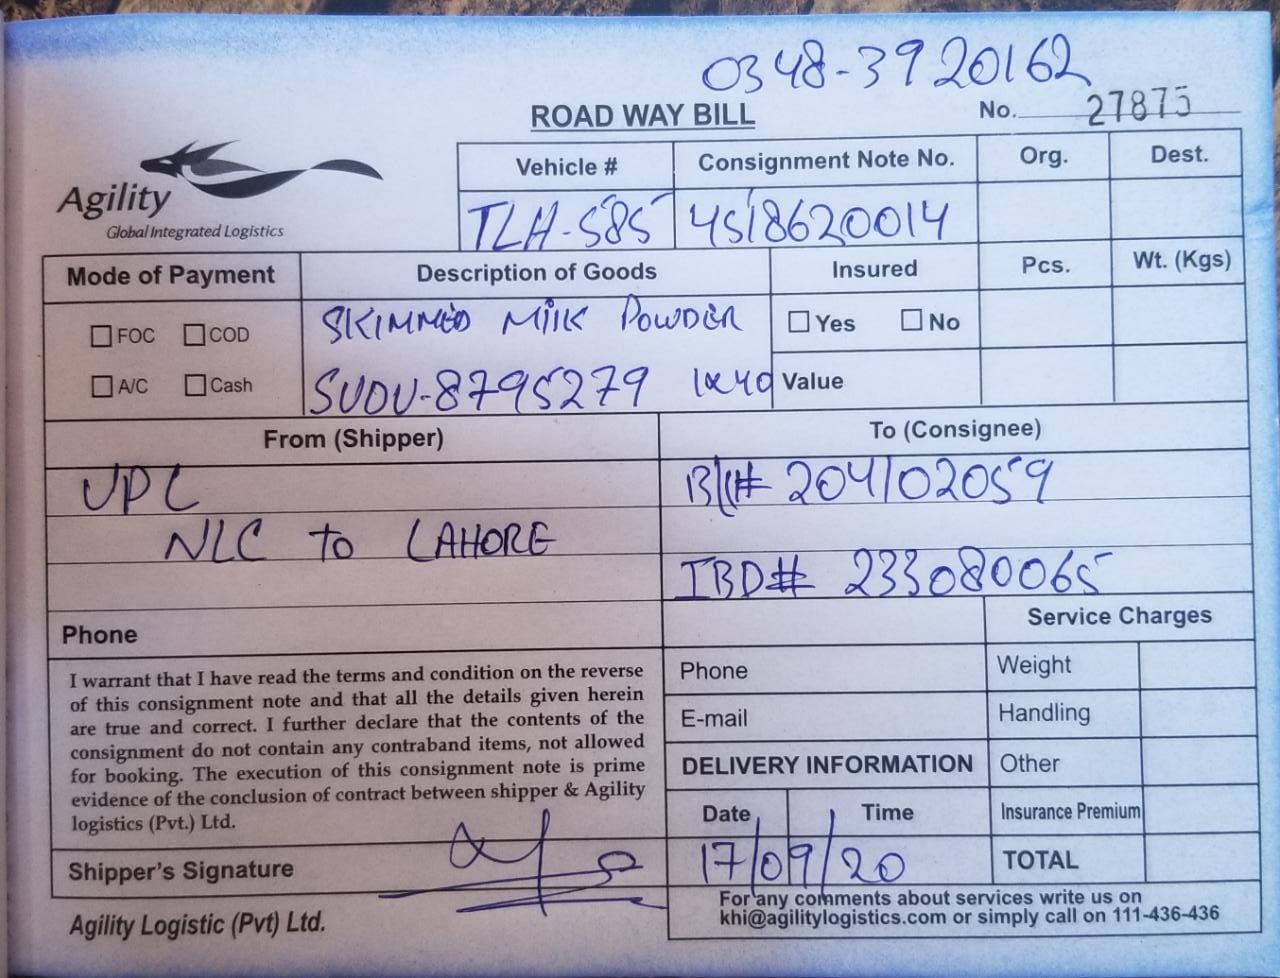 0348-3920162
ROAD WAY BILL
No. 27875
Agility
Global Integrated Logistics
Vehicle # Consignment Note No. Org. Dest.
TLH-585 4518620014
Mode of Payment Description of Goods Insured Pcs. Wt. (Kgs)
FOC COD SKIMMED MilK POWDER Yes No
A/C Cash SUDU-8795279 1x40 Value
From (Shipper) To (Consignee)
UPL BL# 204102059
NLC to LAHORE
IBD# 233080065
Phone Service Charges
I warrant that I have read the terms and condition on the reverse
of this consignment note and that all the details given herein
are true and correct. I further declare that the contents of the
consignment do not contain any contraband items, not allowed
for booking. The execution of this consignment note is prime
evidence of the conclusion of contract between shipper & Agility
logistics (Pvt.) Ltd.
Phone Weight
E-mail Handling
DELIVERY INFORMATION Other
Date Time Insurance Premium
Shipper's Signature 17/09/20 TOTAL
Agility Logistic (Pvt) Ltd.
For any comments about services write us on
khi@agilitylogistics.com or simply call on 111-436-436